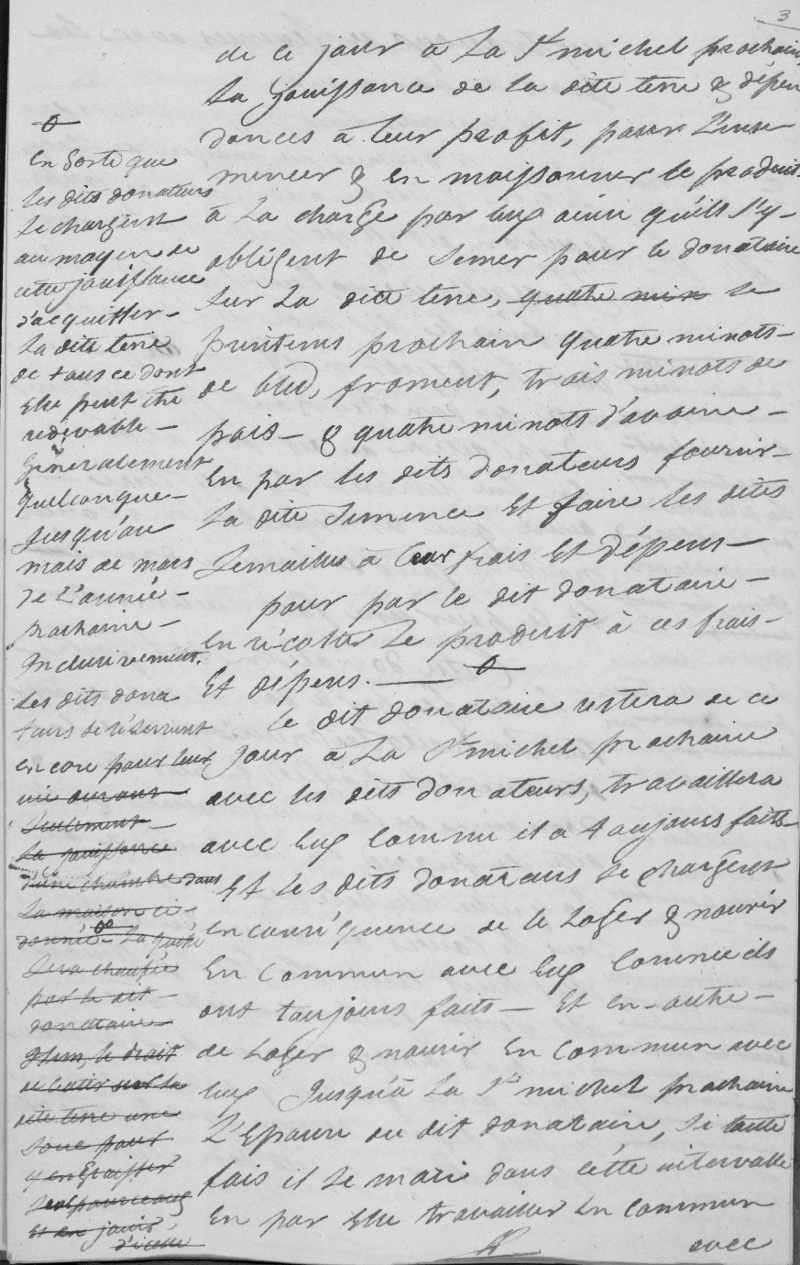 3
de ce jour à La St michel prochain,
La jouissance de la dite terre & dépen
dances à leur profit, pour L'ense
mencer & en moissonner le produit
à La charge par Eux ainsi qu'ils s'y-
obligent de Semer pour le donataire
Sur La dite terre, quatre min le
printems prochain quatre minots-
de bled, froment, trois minots de
pois- & quatre minots d'avoine-
En par les dits donateurs fournir-
La dite Semence Et faire les dites
Semailles à leur frais Et dépens-
pour par le dit donataire-
En récolter Le produit à ces frais-
Et dépens.
Le dit donataire restera de ce
jour à La St michel prochaine
avec les dits donateurs, travaillera
avec Eux Comme il a toujours faits
Et Les dits donateurs Se chargent
En conséquence de le Loger & nourir
En Commun avec Eux Comme ils
ont toujours faits- Et en-outre-
de Loger & nourir En Commun avec
Eux Jusqu'à La St michel prochaine
L'Epouse du dit donataire, Si toute
fois il Se marie dans cette intervalle
En par Elle travailler En Commun
avec
En Sorte que
Les dits donateurs
Se chargent
au moyen de
cette jouissance
d'acquitter-
La dite terre
de tous ce dont
Elle peut être
redevable-
Généralement
quelconque-
Jusqu'au
mois de mars
De L'année-
prochaine-
Inclusivement.
Les dits dona
teurs se réservent
encore pour leur
vie durant
Seulement-
La jouissance
d'une chambre dans
La maison ci-
donnée- La
Sera chauffée
par le dit-
donataire-
Item, le droit
de batir sur la
dite terre une
Soue pour
y engraisser
Et en jouir
d'icelle